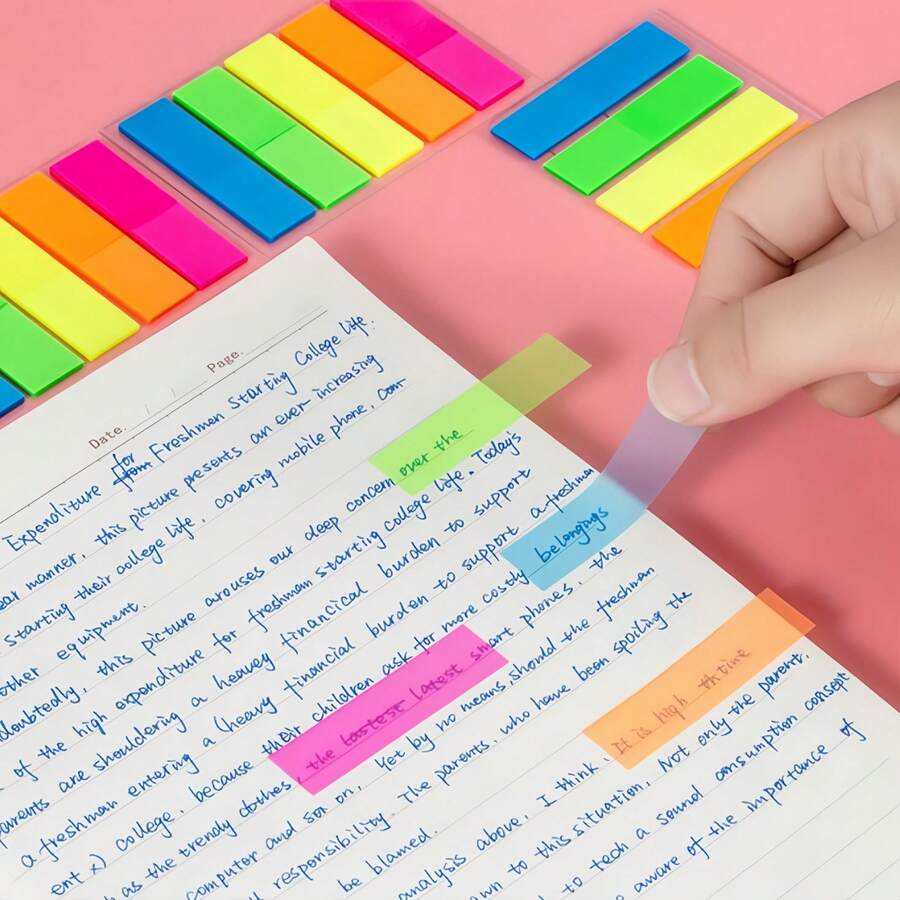 Date. / / Page.
Expenditure for from Freshmen Starting College Life.
ear manner, this picture presents an ever increasing
starting their college life, covering mobile phone, com
other equipment.
doubtedly, this picture arouses our deep concern over the
of the high expenditure for freshman starting college life. Today's
parents are shouldering a heavey financial burden to support
a freshman entering a (heavy financial burden to support a freshman
ent x) college, because their children ask for more costly belongings
h as the trendy clothes, the lastest latest smart phones, the
computer and so on, Yet by no means, should the freshman
responsibility. The parents, who have been spoiling the
be blamed.
analysis above, I think, It is high thtime
own to this situation, Not only the parent,
d to tech a sound consumption consept
aware of the importance of